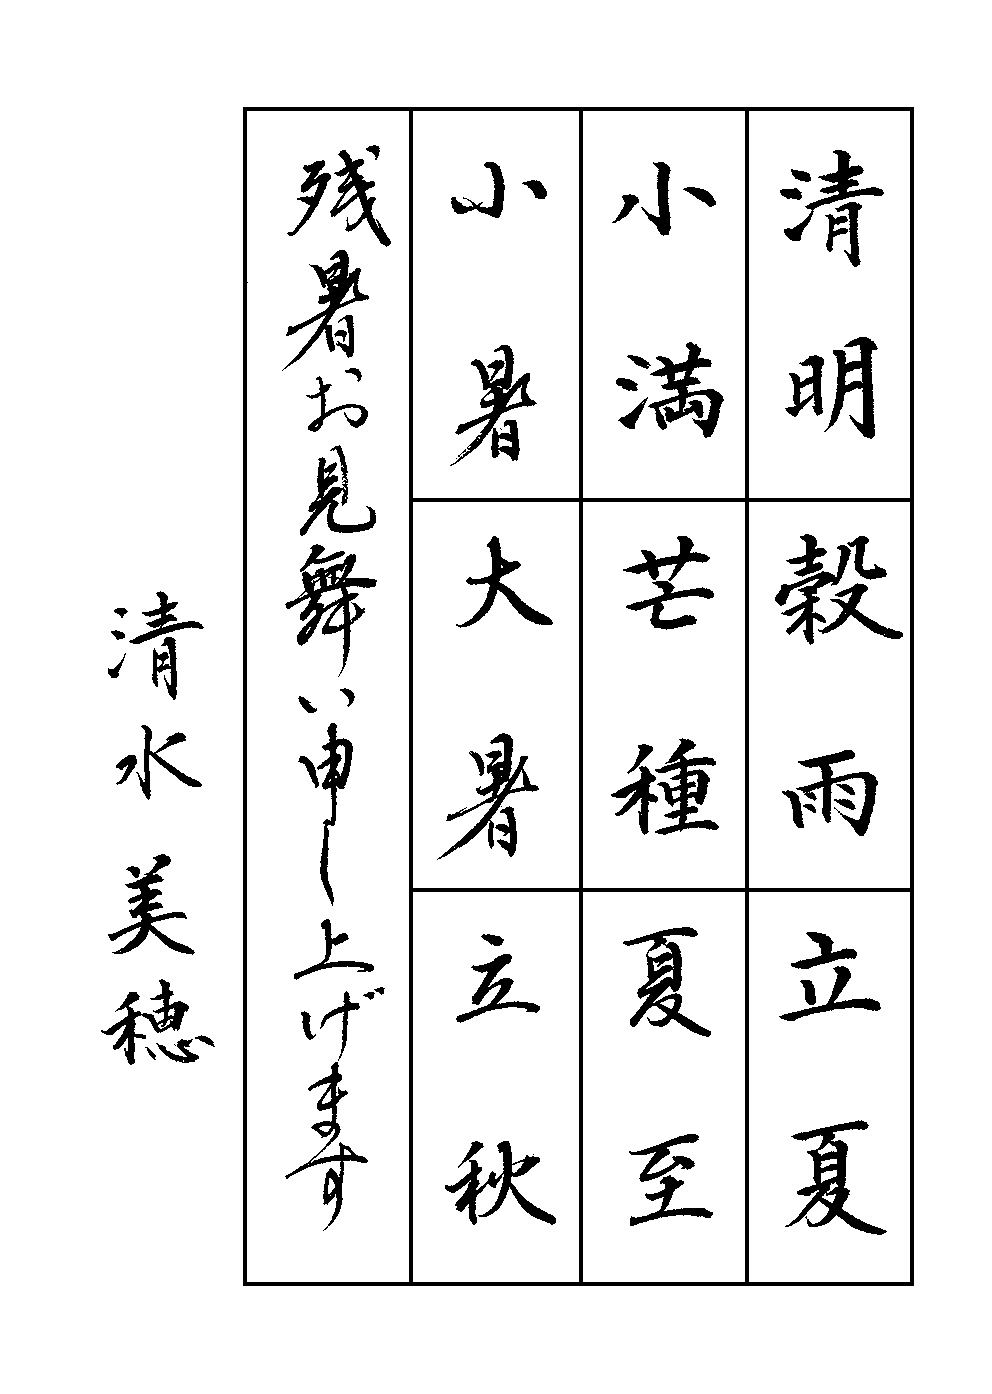 清明 穀雨 立夏
小満 芒種 夏至
小暑 大暑 立秋
残暑お見舞い申し上げます
清水美穂